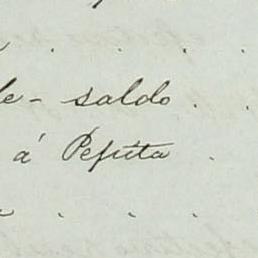 le - saldo . .
á Pepita .